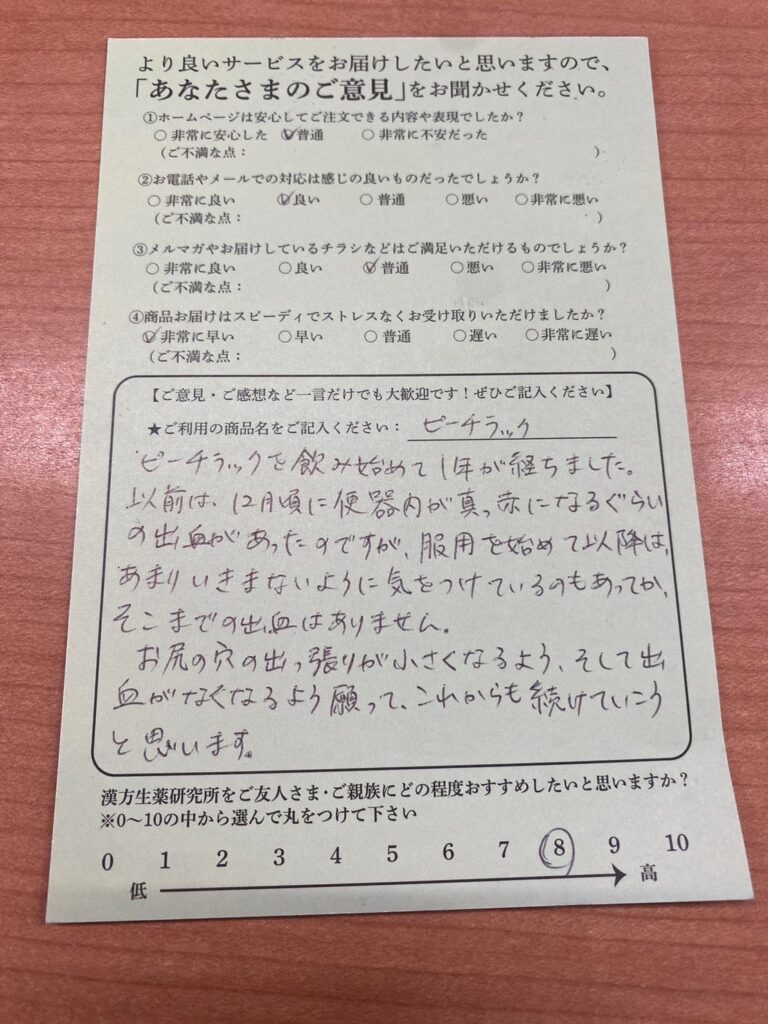 より良いサービスをお届けしたいと思いますので、
「あなたさまのご意見」をお聞かせください。
①ホームページは安心してご注文できる内容や表現でしたか？
○ 非常に安心した ○ 普通 ○ 非常に不安だった
(ご不満な点： )
②お電話やメールでの対応は感じの良いものだったでしょうか？
○ 非常に良い ○ 良い ○ 普通 ○ 悪い ○ 非常に悪い
(ご不満な点： )
③メルマガやお届けしているチラシなどはご満足いただけるものでしょうか？
○ 非常に良い ○ 良い ○ 普通 ○ 悪い ○ 非常に悪い
(ご不満な点： )
④商品お届けはスピーディでストレスなくお受け取りいただけましたか？
○ 非常に早い ○ 早い ○ 普通 ○ 遅い ○ 非常に遅い
(ご不満な点： )
【ご意見・ご感想など一言だけでも大歓迎です！ぜひご記入ください】
★ご利用の商品名をご記入ください： ピーチラック
ピーチラックを飲み始めて1年が経ちました。
以前は、12月頃に便器内が真っ赤になるぐらい
の出血があったのですが、服用を始めて以降は、
あまりいきまないように気をつけているのもあってか、
そこまでの出血はありません。
お尻の穴の出っ張りが小さくなるよう、そして出
血がなくなるよう願って、これからも続けていこう
と思います。
漢方生薬研究所をご友人さま・ご親族にどの程度おすすめしたいと思いますか？
※0～10の中から選んで丸をつけて下さい
0 1 2 3 4 5 6 7 8 9 10
低 高